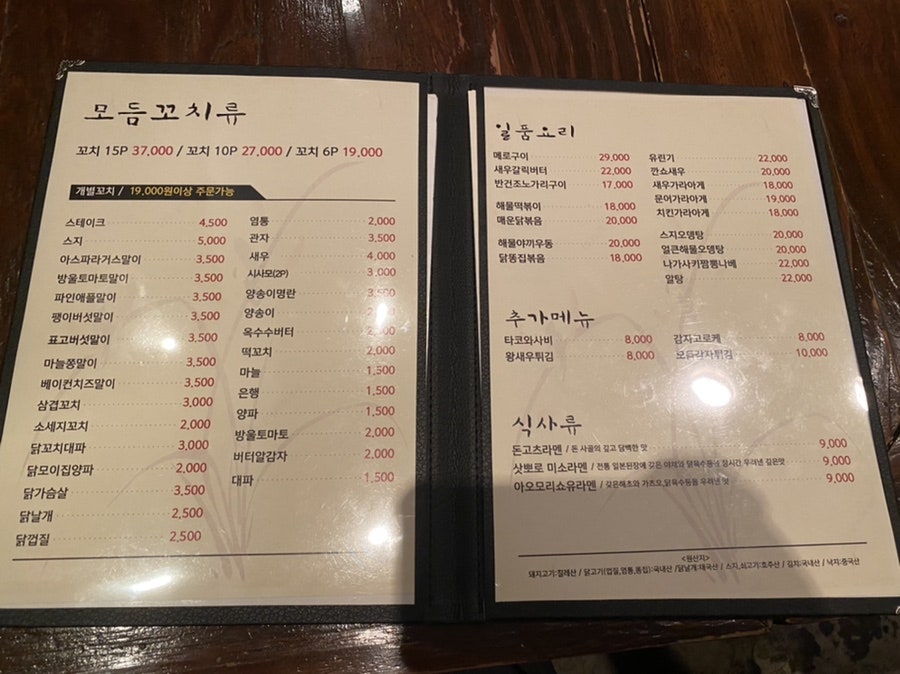 모듬꼬치류
꼬치 15P 37,000 / 꼬치 10P 27,000 / 꼬치 6P 19,000
개별꼬치 / 19,000원이상 주문가능
스테이크 4,500
스지 5,000
아스파라거스말이 3,500
방울토마토말이 3,500
파인애플말이 3,500
팽이버섯말이 3,500
표고버섯말이 3,500
마늘쫑말이 3,500
베이컨치즈말이 3,500
삼겹꼬치 3,000
소세지꼬치 2,000
닭꼬치대파 3,000
닭모이집양파 2,000
닭가슴살 3,500
닭날개 2,500
닭껍질 2,500
염통 2,000
관자 3,500
새우 4,000
시사모(2P) 3,000
양송이명란 3,500
양송이
옥수수버터
떡꼬치 2,000
마늘 1,500
은행 1,500
양파 1,500
방울토마토 2,000
버터알감자 2,000
대파 1,500
일품요리
메로구이 29,000
새우갈릭버터 22,000
반건조노가리구이 17,000
해물떡볶이 18,000
매운닭볶음 20,000
해물야끼우동 20,000
닭똥집볶음 18,000
유린기 22,000
깐쇼새우 20,000
새우가라아게 18,000
문어가라아게 19,000
치킨가라아게 18,000
스지오뎅탕 20,000
얼큰해물오뎅탕 20,000
나가사키짬뽕나베 22,000
알탕 22,000
추가메뉴
타코와사비 8,000
왕새우튀김 8,000
감자고로케 8,000
모듬감자튀김 10,000
식사류
돈고츠라멘 / 돈 사골의 깊고 담백한 맛 9,000
삿뽀로 미소라멘 / 전통 일본된장에 갖은 야채와 닭육수등을 장시간 우려낸 깊은맛 9,000
아오모리쇼유라멘 / 갖은해초와 가츠오,닭육수등을 우려낸 맛 9,000
<원산지>
돼지고기:칠레산 / 닭고기(껍질,염통,똥집):국내산 / 닭날개:태국산 / 스지,쇠고기:호주산 / 김치:국내산 / 낙지:중국산